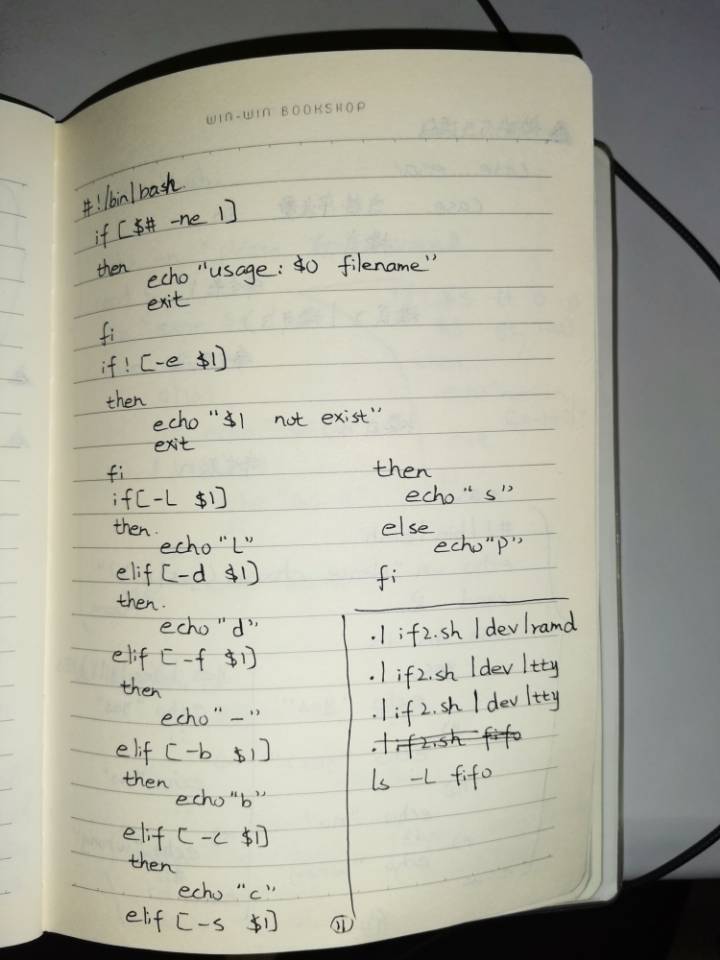 WIN-WIN BOOKSHOP
#!/bin/bash
if [$# -ne 1]
then
echo "usage: $0 filename"
exit
fi
if ! [-e $1]
then
echo "$1 not exist"
exit
fi
if [-L $1]
then
echo "L"
elif [-d $1]
then
echo "d"
elif [-f $1]
then
echo "-"
elif [-b $1]
then
echo "b"
elif [-c $1]
then
echo "c"
elif [-s $1]
then
echo "s"
else
echo "p"
fi
./if2.sh /dev/ramd
./if2.sh /dev/tty
./if2.sh /dev/tty
./if2.sh fifo
ls -L fifo
11